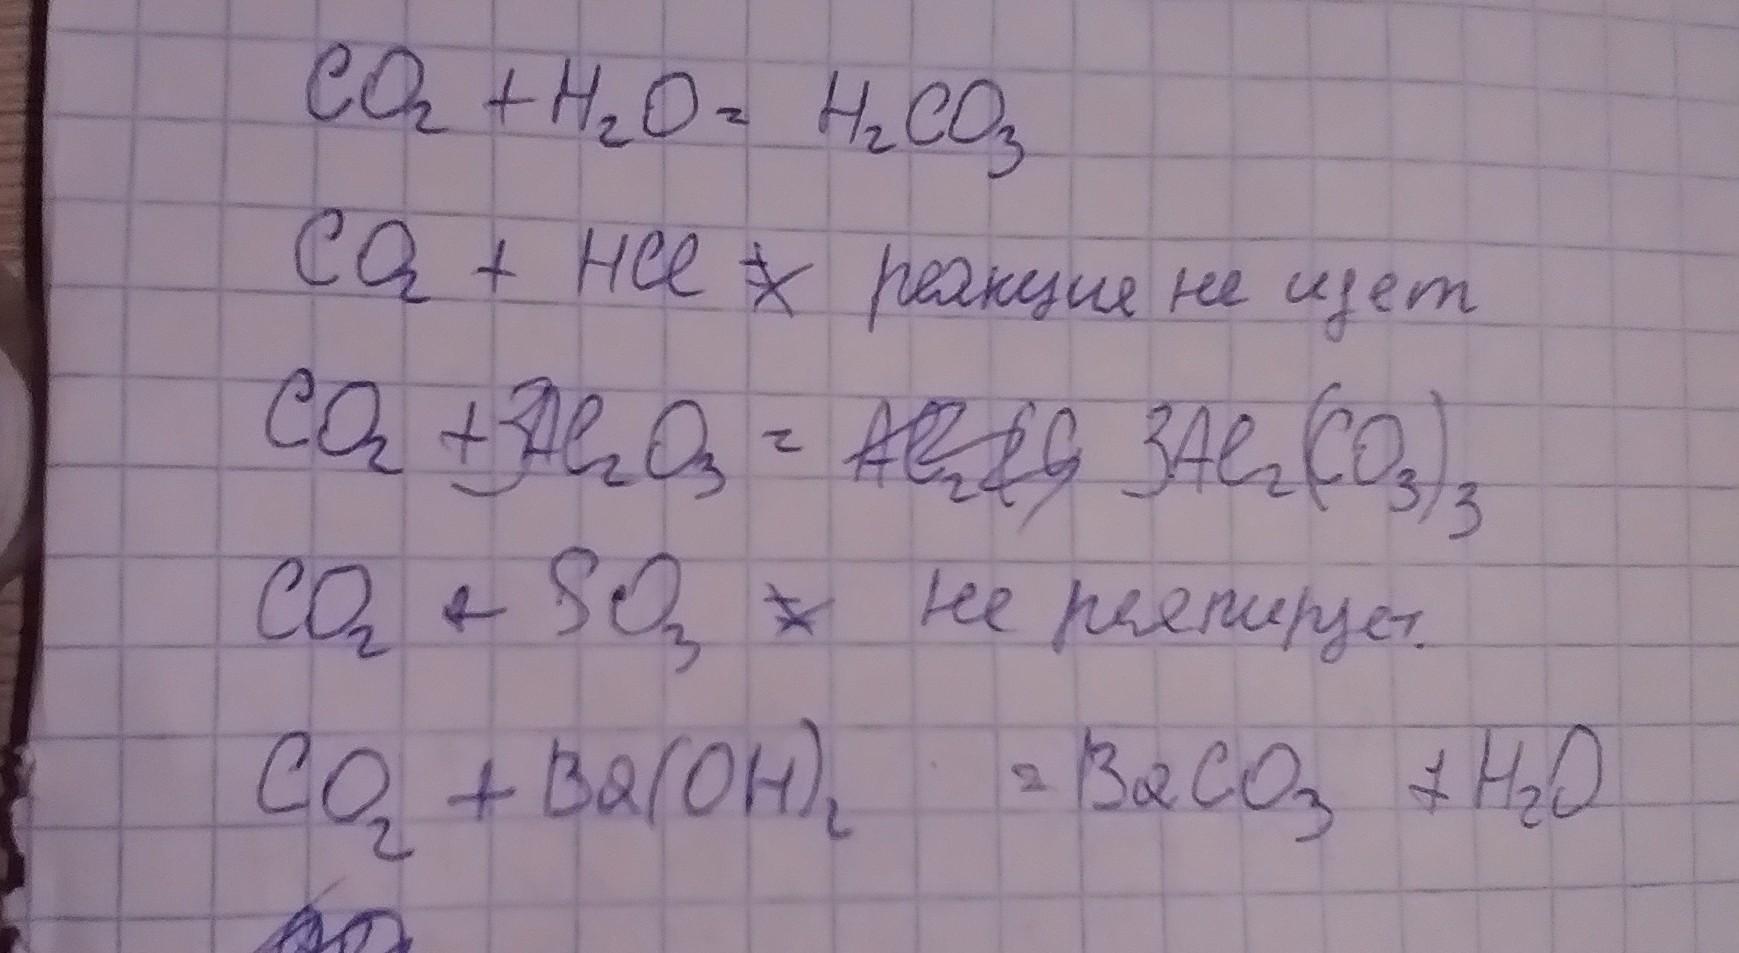 CO₂ + H₂O = H₂CO₃
CO₂ + HCl ≠ реакция не идет
CO₂ + 3Al₂O₃ = 3Al₂(CO₃)₃
CO₂ + SO₃ ≠ не реагирует.
CO₂ + Ba(OH)₂ = BaCO₃ + H₂O